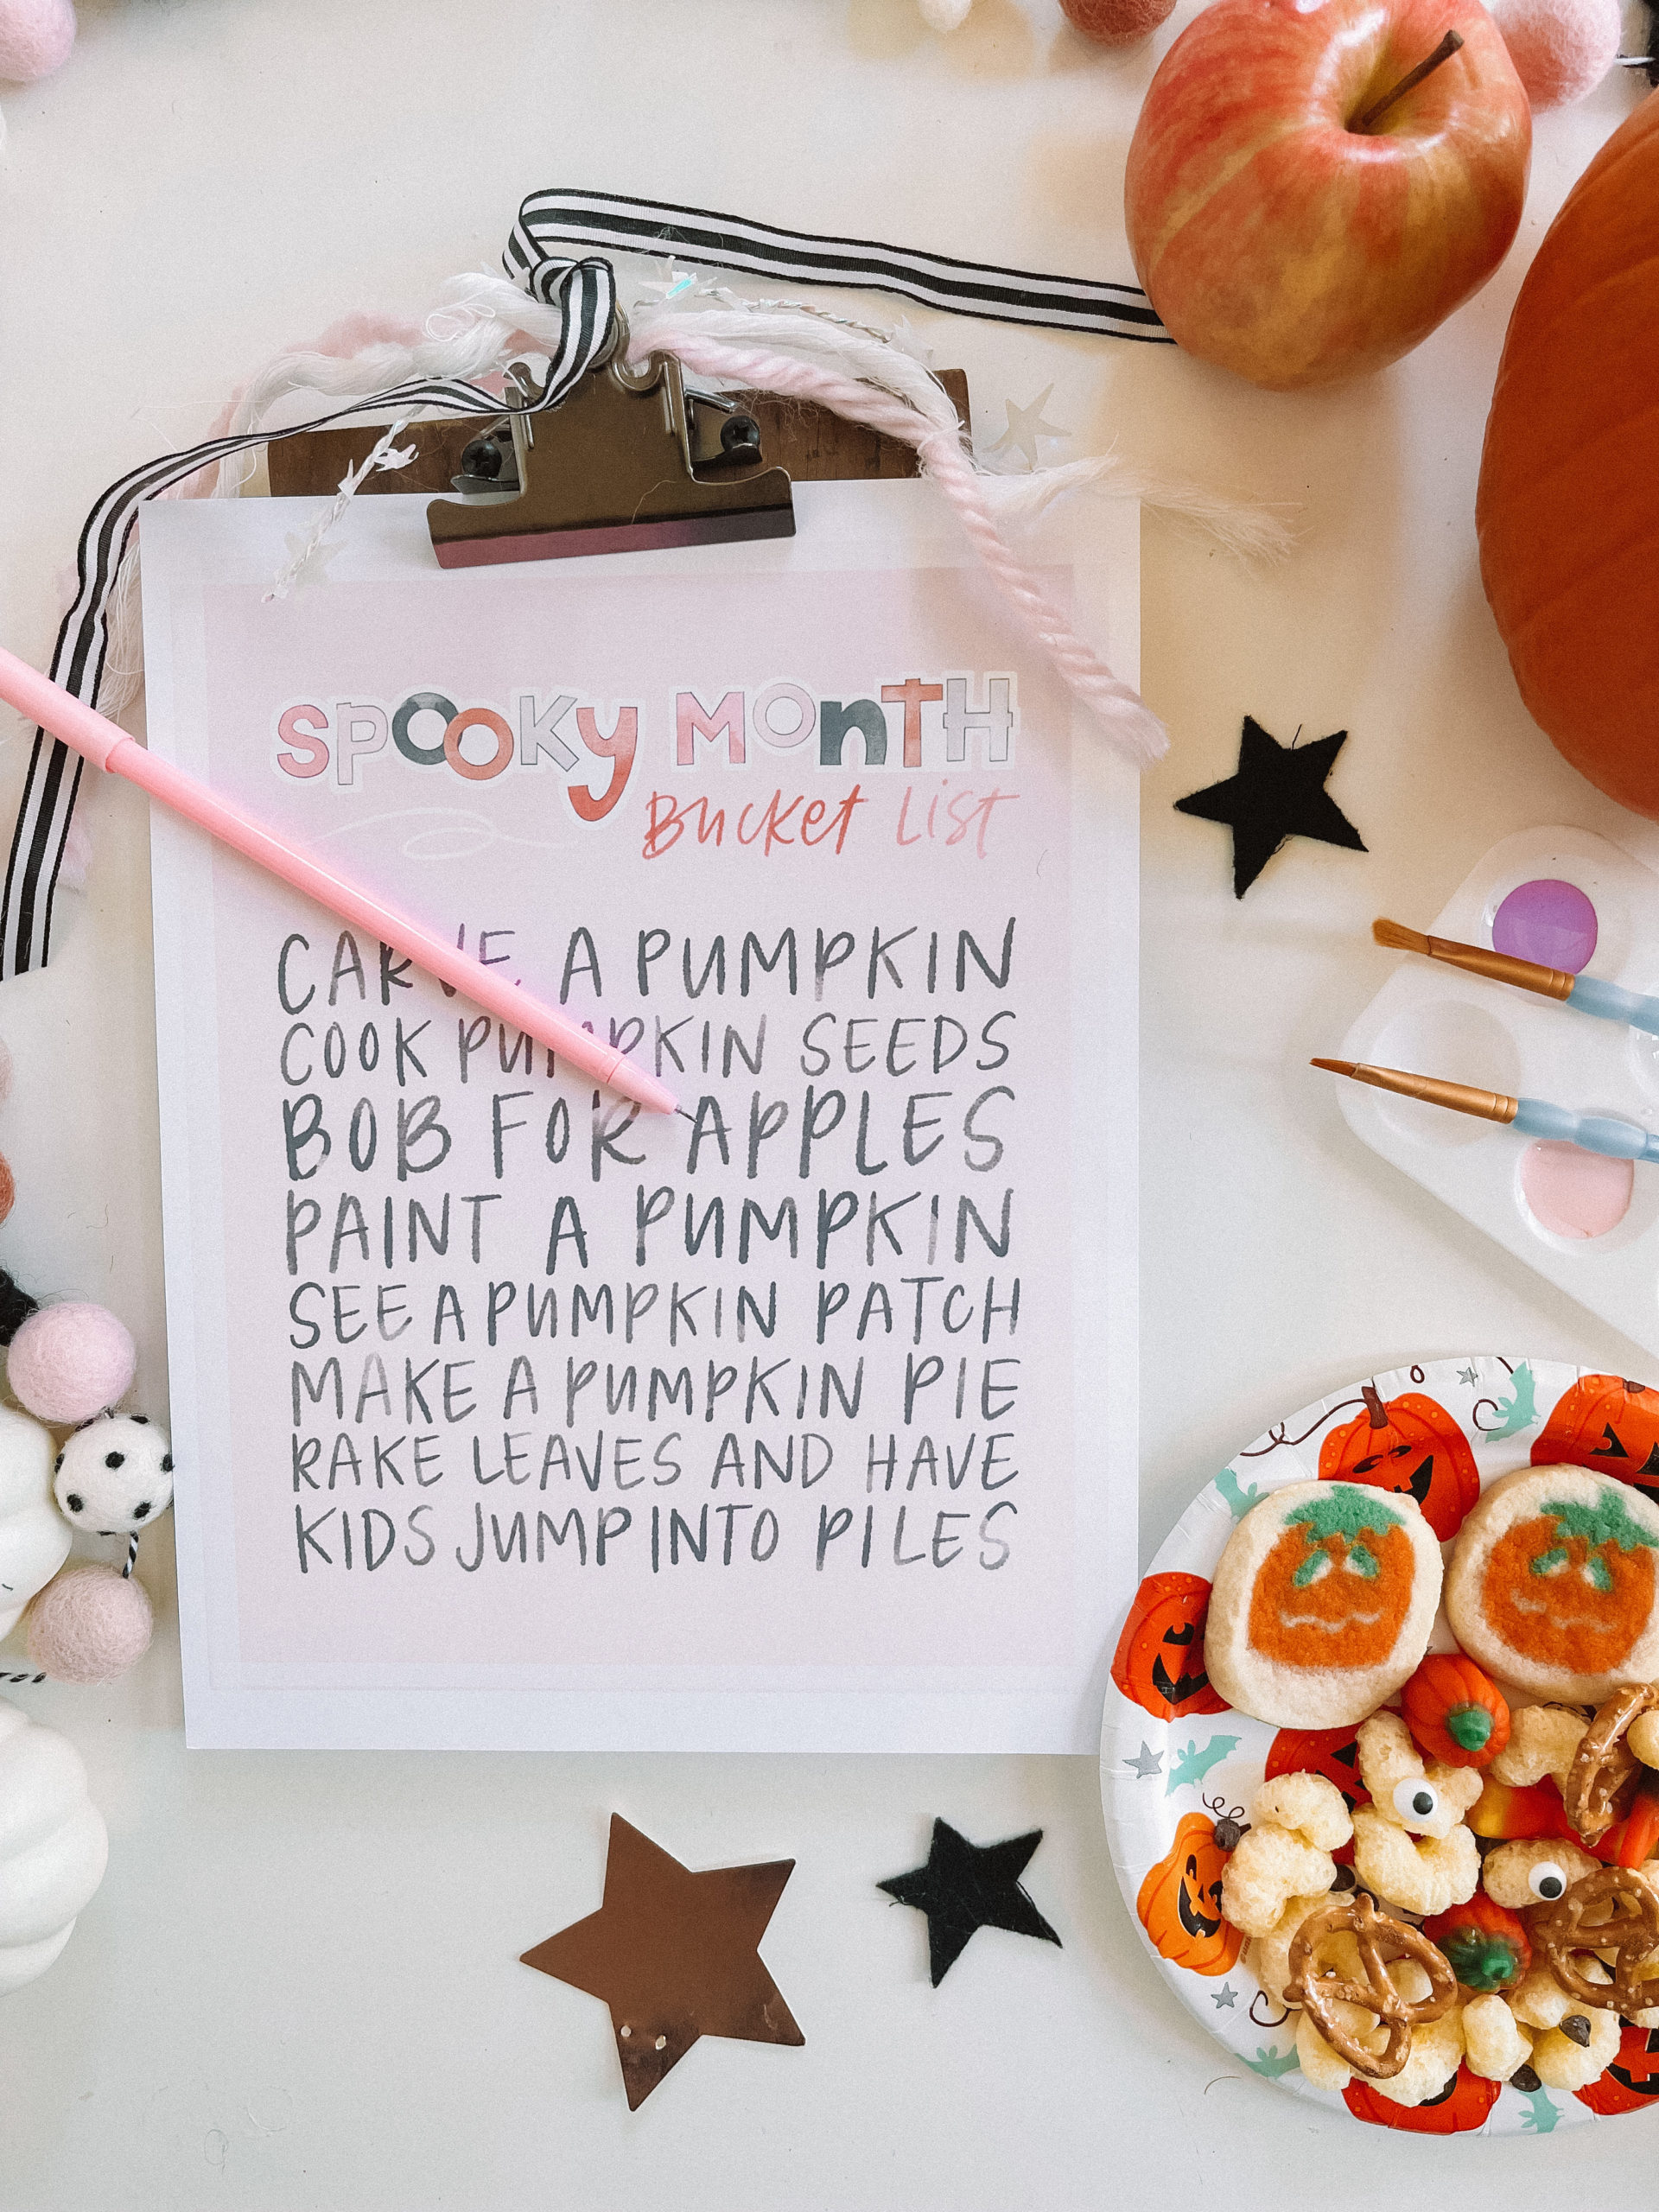 SPOOKY MONTH
BUCKET LIST
CARVE A PUMPKIN
COOK PUMPKIN SEEDS
BOB FOR APPLES
PAINT A PUMPKIN
SEE A PUMPKIN PATCH
MAKE A PUMPKIN PIE
RAKE LEAVES AND HAVE
KIDS JUMP INTO PILES